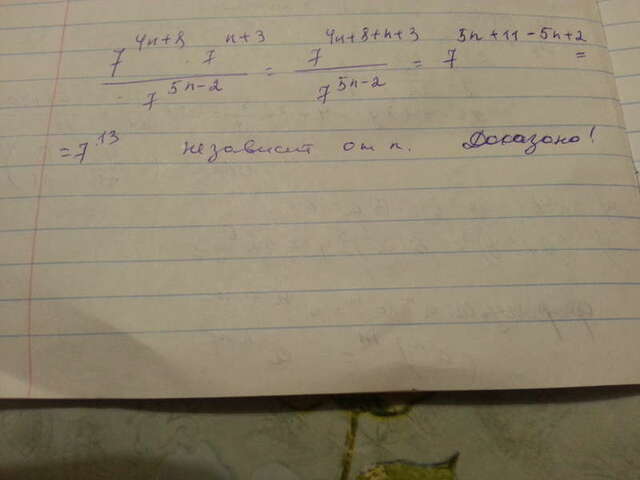 7^{4n+8} · 7^{n+3} / 7^{5n-2} = 7^{4n+8+n+3} / 7^{5n-2} = 7^{5n+11-5n+2} =
=7^{13} независит от n. Доказано!